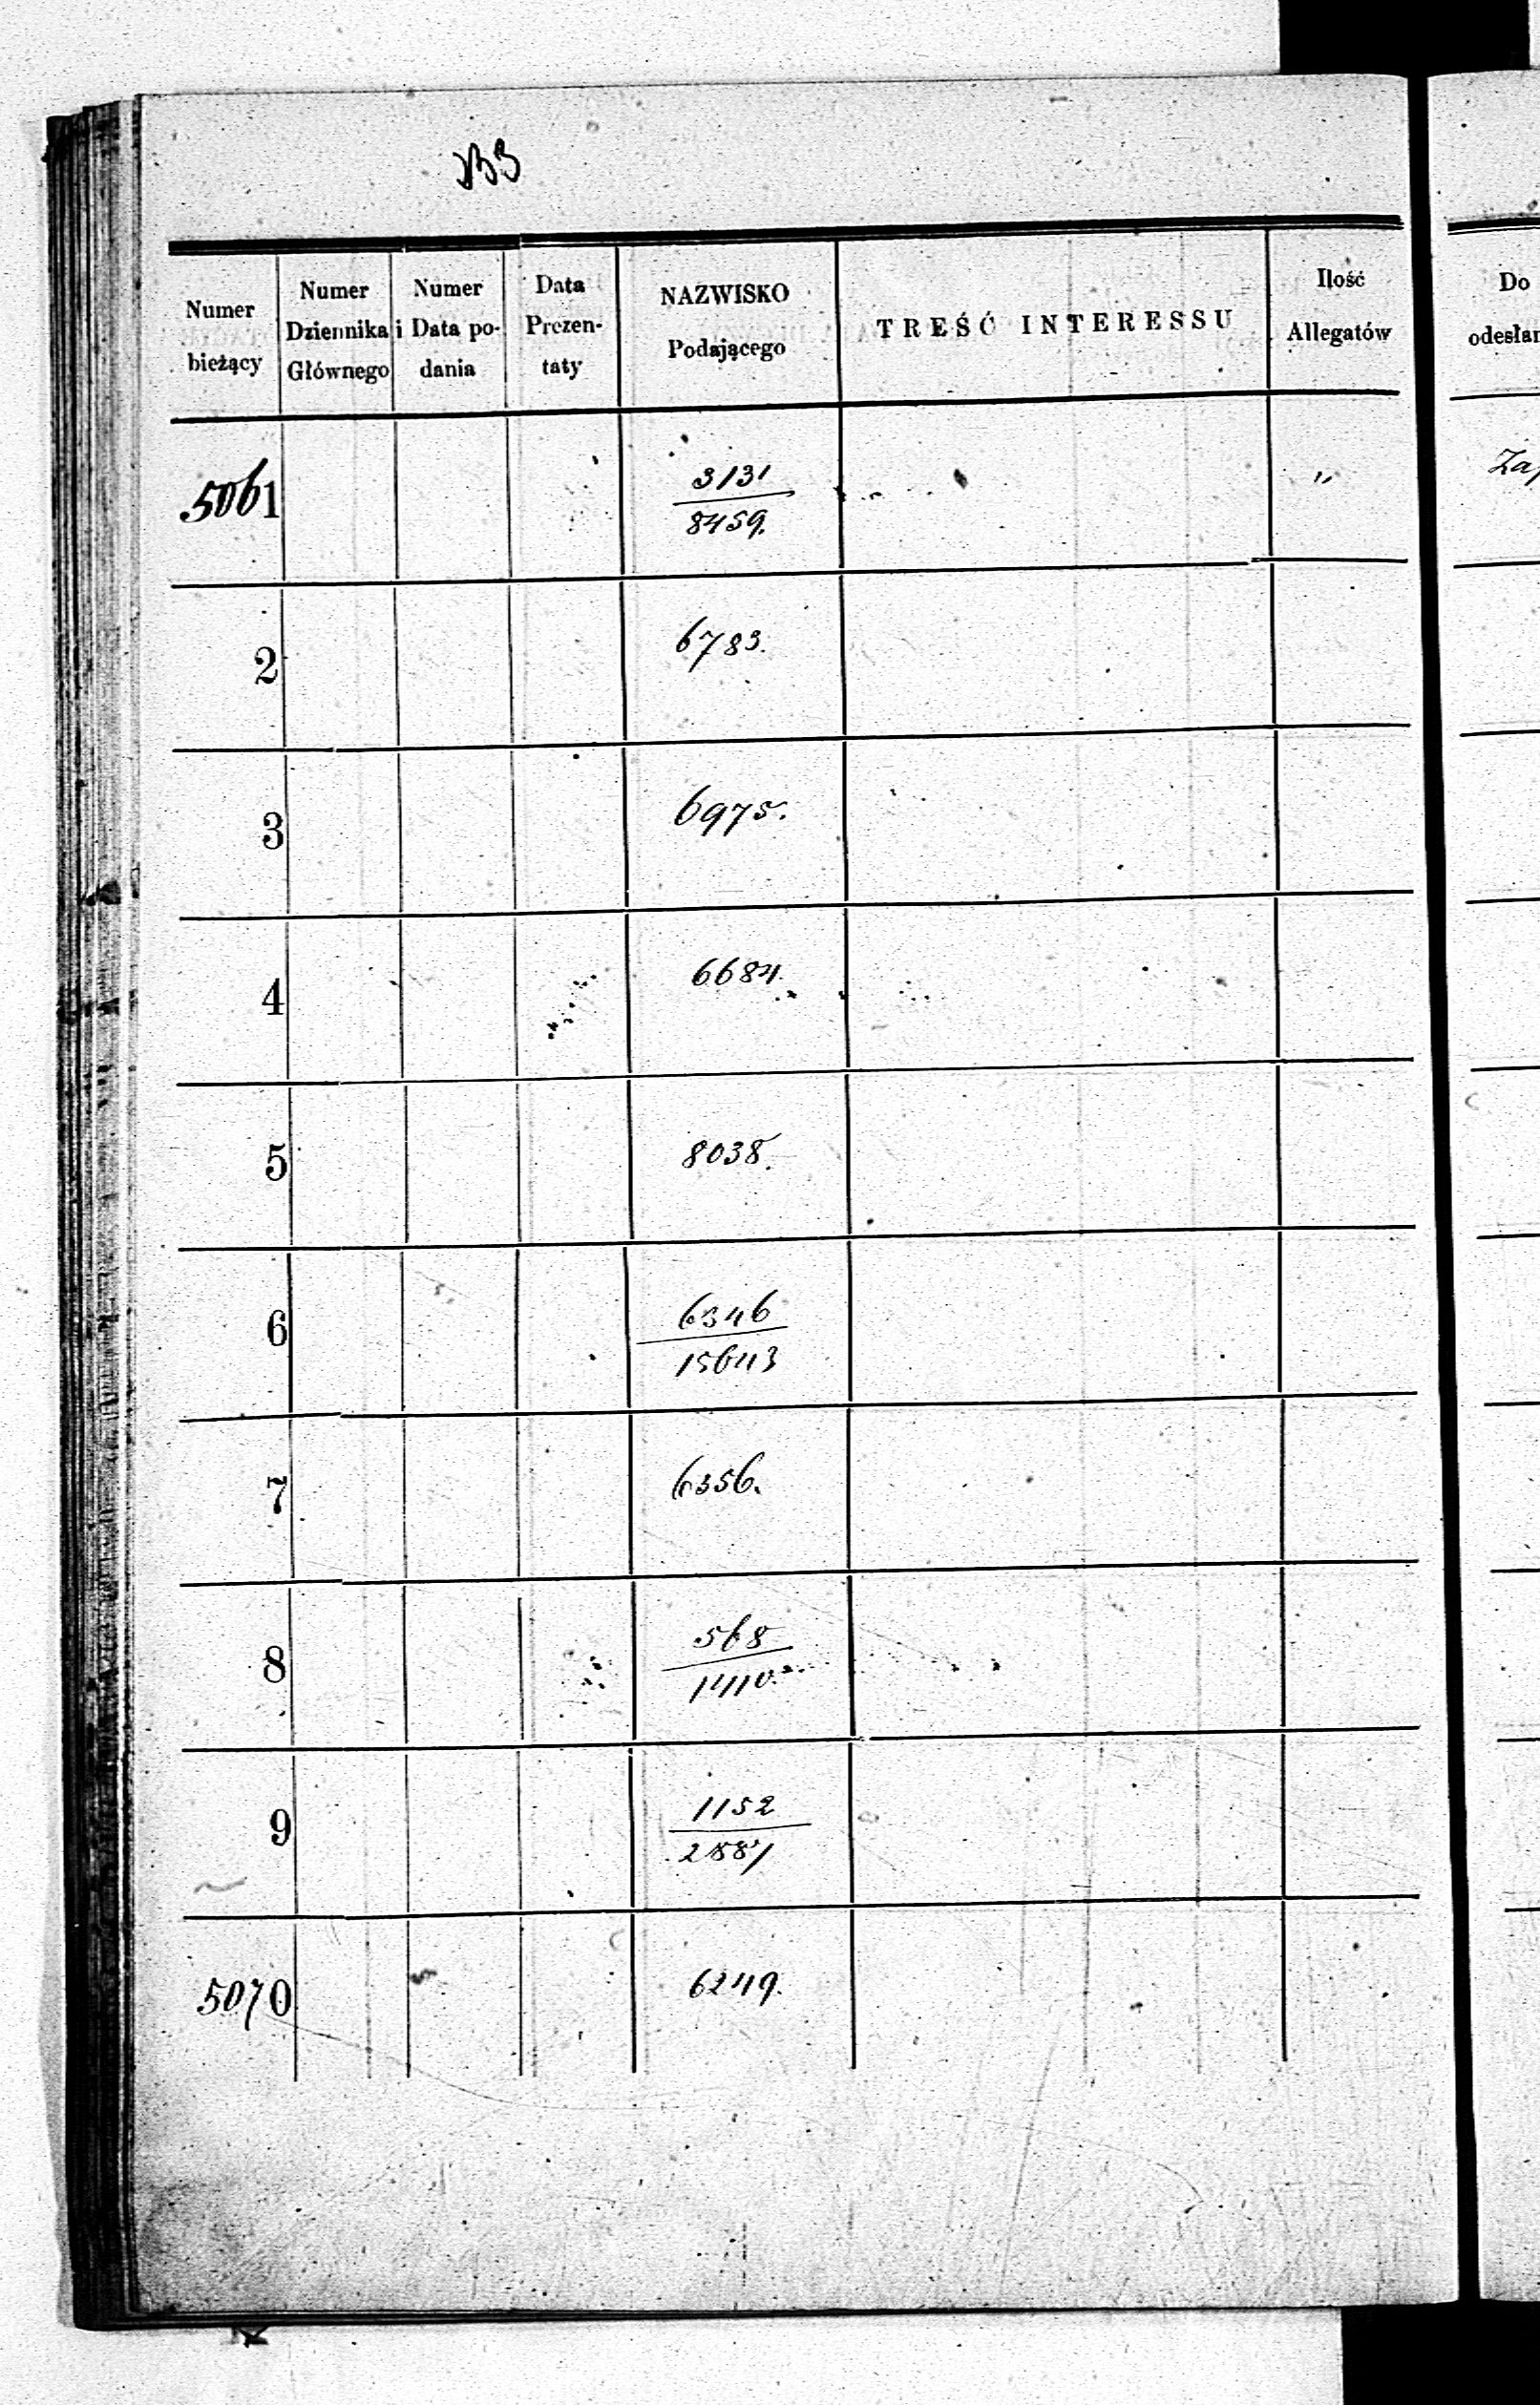 Numer bieżący
Numer Dziennika Głównego
Numer i Data podania
Data Prezentaty
NAZWISKO Podającego
TREŚĆ INTERESSU
Ilość Allegatów
Do
5061
3131
8459.
„
2
6783.
3
6975.
4
6684.
5
8038.
6
6346
15643
7
6356.
8
568
1410.
9
1152
2887
5070
6249.